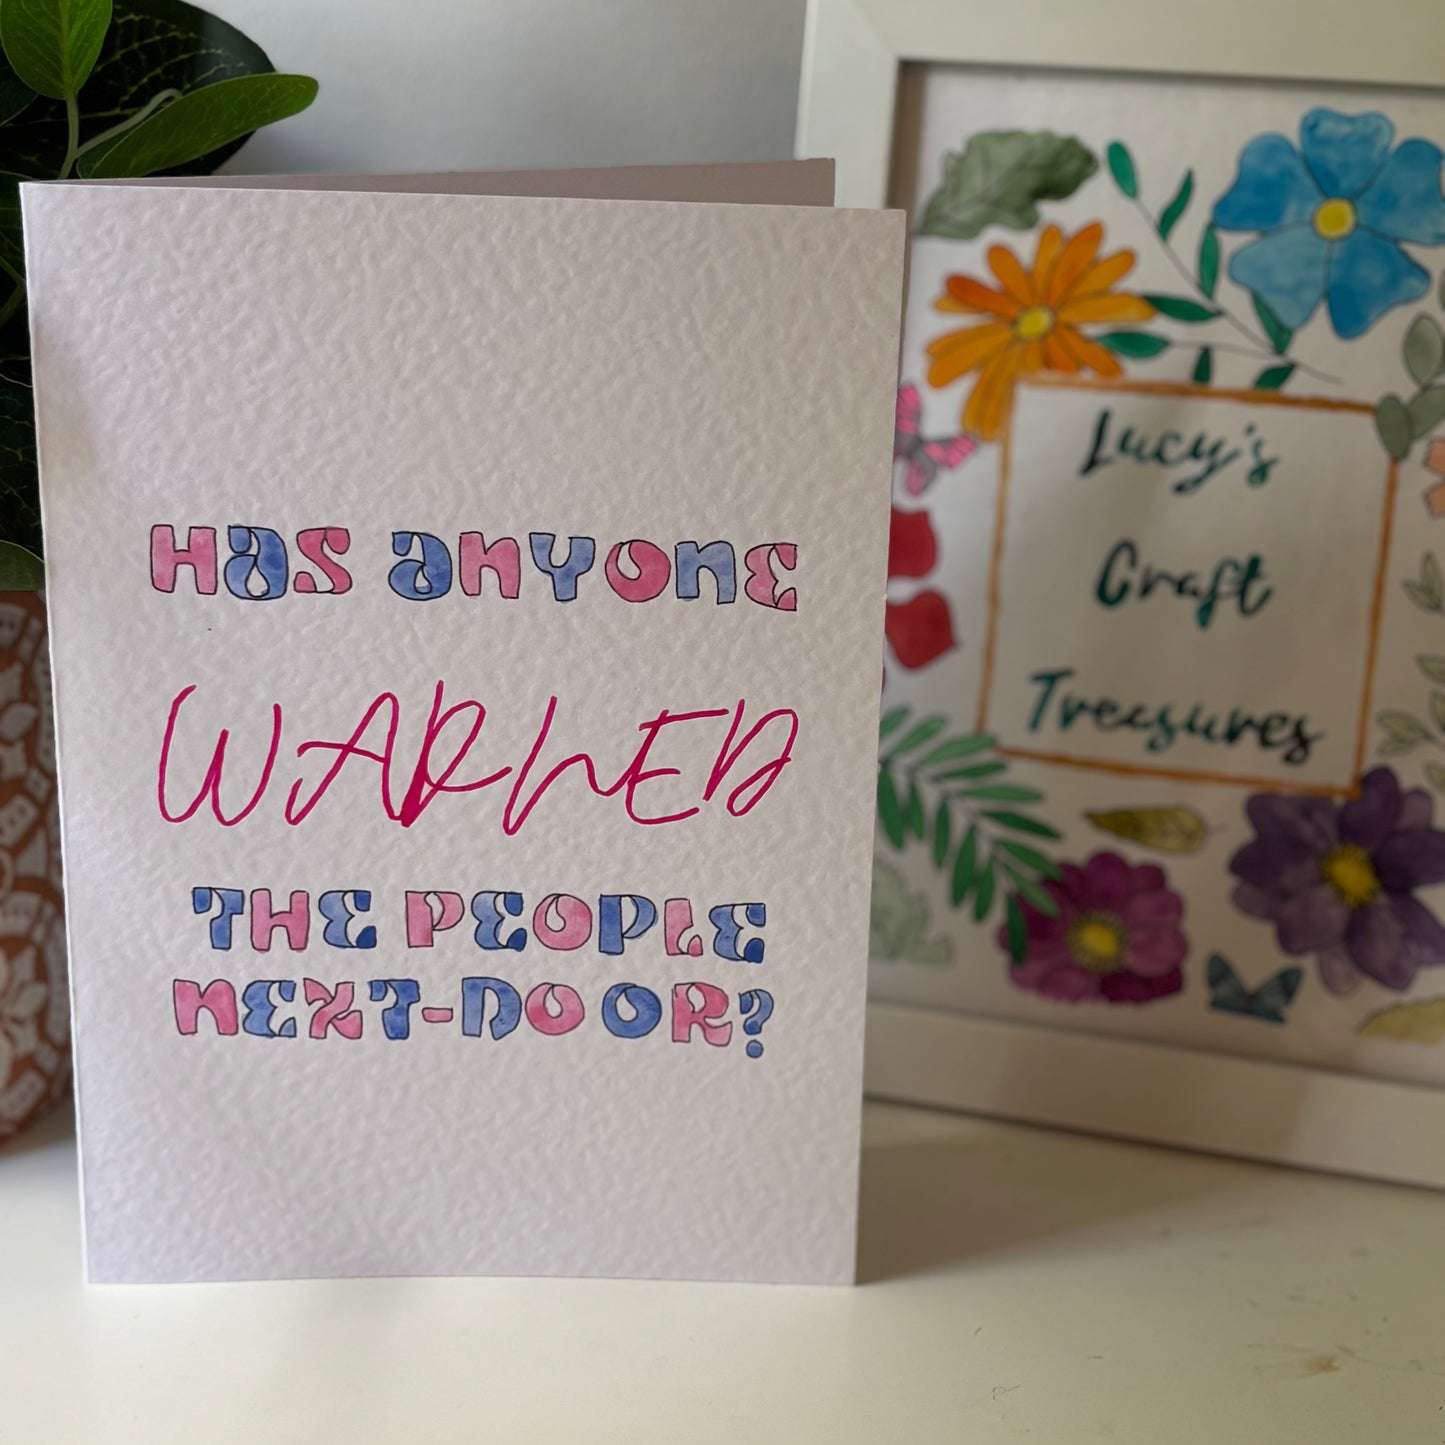 HAS ANYONE
WARNED
THE PEOPLE
NEXT-DOOR?
Lucy's
Craft
Treasures